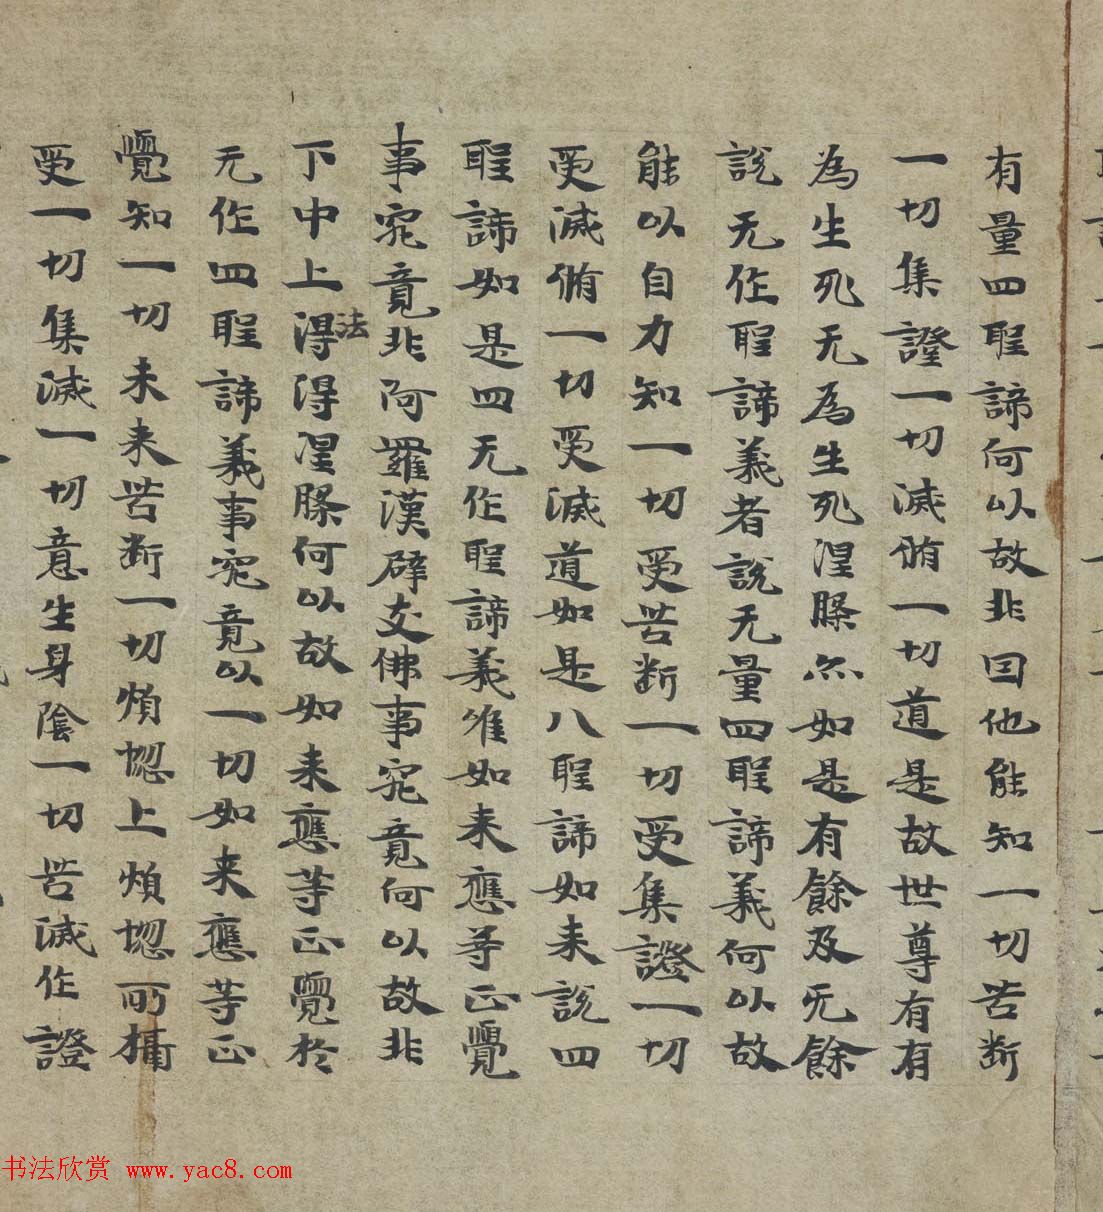 有量四聖諦何以故非因他能知一切苦断
一切集證一切滅脩一切道是故世尊有有
為生死无為生死涅槃亦如是有餘及无餘
說无作聖諦義者說无量四聖諦義何以故
能以自力知一切受苦断一切受集證一切
受滅脩一切受滅道如是八聖諦如来說四
聖諦如是四无作聖諦義唯如来應等正覺
事究竟非阿羅漢辟支佛事究竟何以故非
下中上得法得涅槃何以故如来應等正覺於
无作四聖諦義事究竟以一切如来應等正
覺知一切未来苦断一切煩惱上煩惱所攝
受一切集滅一切意生身陰一切苦滅作證
书法欣赏 www.yac8.com